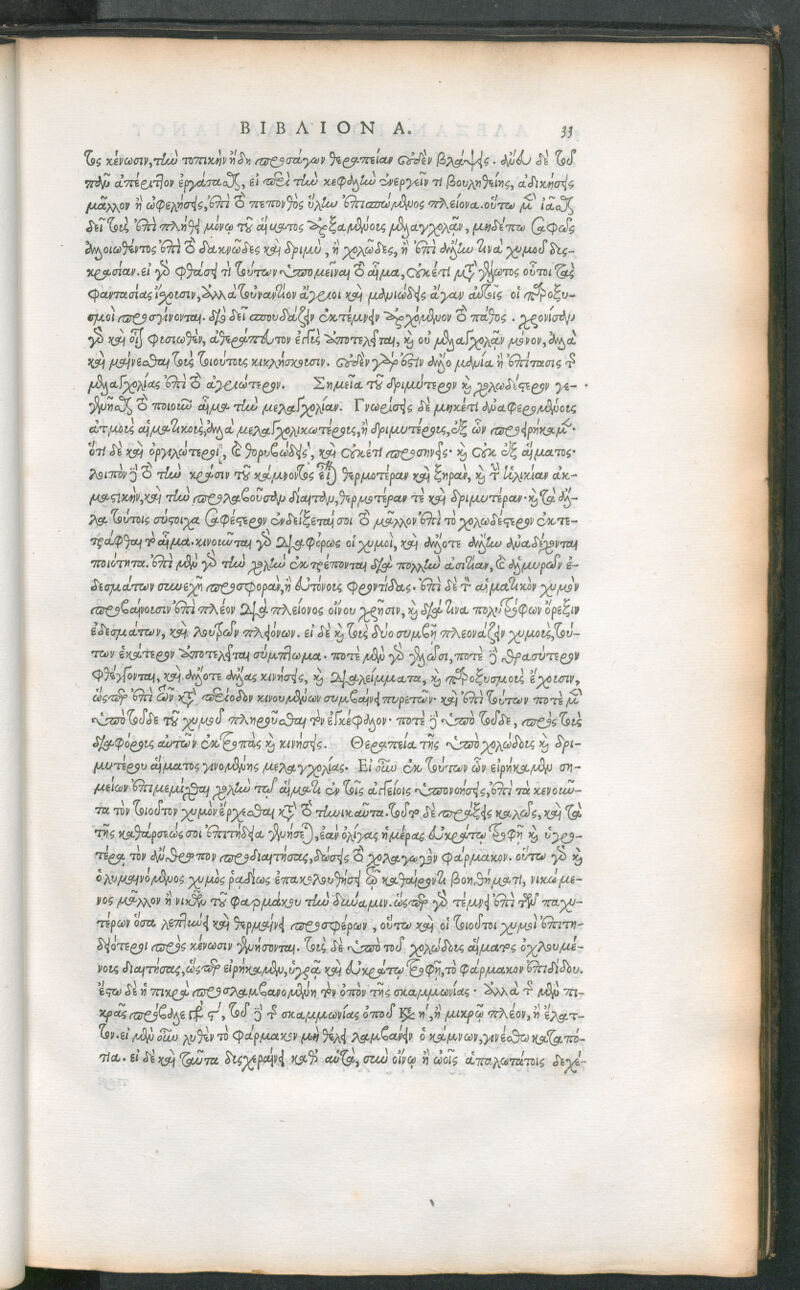 ΒΙΒΛΙΟΝ Α. 33
τος κένωσιν, τὴν τοπικὴν ἤδη προσάγων θεραπείαν οὐδὲν βλάψεις. ἄνευ δὲ τοῦ
πᾶν ἀπέριττον ἐργάσασθαι, εἰ περὶ τὴν κεφαλὴν ἐνεργεῖν τι βουληθείης, ἀδικήσεις
μᾶλλον ἢ ὠφελήσεις, ἐπὶ τὸ πεπονθὸς ὕλην ἐπισπώμενος πλείονα. οὕτω μὲν ἰᾶσθαι
δεῖ τοὺς ἐπὶ πλήθει μόνῳ τοῦ αἵματος ἀρξαμένους μελαγχολᾶν, μηδέπω σαφῶς
ἀλλοιωθέντος ἐπὶ τὸ δακνῶδες καὶ δριμὺ, ἢ χολῶδες, ἢ ἐπὶ ἄλλην τινὰ χυμοῦ δυσ-
κρασίαν. εἰ γὰρ φθάσει τι τούτων ὑπομεῖναι τὸ αἷμα, οὐκέτι μετὰ γέλωτος οὗτοι τὰς
φαντασίας ἴσχουσιν, ἀλλὰ τοὐναντίον ἄγριοι καὶ μανιώδεις ἄγαν αὐτοῖς οἱ παροξυ-
σμοὶ προσγίνονται. διὸ δεῖ σπουδάζειν ἐκτέμνειν ἀρχόμενον τὸ πάθος. χρονίσαν
γὰρ καὶ φυσιωθὲν, ἀθεράπευτον ἐστὶς ἀποτελεῖται, καὶ οὐ μελαγχολᾶν μόνον, ἀλλὰ
καὶ μαίνεσθαι τοὺς τοιούτους κικλήσκουσιν. οὐδὲν γάρ ἐστιν ἄλλο μανία ἢ ἐπίτασις τῆς
μελαγχολίας ἐπὶ τὸ ἀγριώτερον. Σημεῖα τοῦ δριμύτερον καὶ χολωδέστερον γε-
γενῆσθαι τὸ ποιοῦν αἷμα τὴν μελαγχολίαν. Γνωρίσεις δὲ μηκέτι ἀναφερομένους
ἀτμοὺς αἱματικοὺς, ἀλλὰ μελαγχολικωτέρους, ἢ δριμυτέρους, ἐξ ὧν προειρήκαμεν·
ὅτι δὲ καὶ ὀργιλώτεροι, καὶ θορυβώδεις, καὶ οὐκέτι προσηνεῖς· καὶ οὐκ ἐξ αἵματος·
λοιπὸν δὲ τὸ τὴν κρᾶσιν τοῦ κάμνοντος εἶναι θερμοτέραν καὶ ξηρὰν, καὶ τὴν ἡλικίαν ἀκ-
μαστικὴν, καὶ τὴν προλαβοῦσαν δίαιταν, θερμοτέραν τε καὶ δριμυτέραν· καὶ τὰ ἄλ-
λα τούτοις σύστοιχα σαφέστερον ἐνδείξεταί σοι τὸ μᾶλλον ἐπὶ τὸ χολωδέστερον ἐκτε-
τράφθαι τὸ αἷμα. κινοῦνται γὰρ διαφόρως οἱ χυμοὶ, καὶ ἄλλοτε ἄλλην ἀναδέχονται
ποιότητα. ἐπὶ μὲν γὰρ τὴν χολὴν ἐκτρέπονται διὰ πολλὴν ἀσιτίαν, καὶ ἁλμυρῶν ἐ-
δεσμάτων συνεχῆ προσφορὰν, ἢ εὐτόνους φροντίδας. ἐπὶ δὲ τὸν αἱματικὸν χυμὸν
προβαίνουσιν ἐπὶ πλέον διὰ πλείονος οἴνου χρῆσιν, καὶ διά τινα πολυτρόφων ὄρεξιν
ἐδεσμάτων, καὶ λουτρῶν πλειόνων. εἰ δὲ καὶ τοὺς δύο συμβῇ πλεονάζειν χυμοὺς, τού-
των ἑκάτερον ἀποτελεῖται σύμπτωμα. ποτὲ μὲν γὰρ γελῶσι, ποτὲ δὲ θρασύτερον
φθέγγονται, καὶ ἄλλοτε ἄλλας κινήσεις, καὶ διαλείμματα, καὶ παροξυσμοὺς ἔχουσιν,
ὥσπερ ἐπὶ τῶν κατὰ περίοδον κινουμένων συμβαίνει πυρετῶν· καὶ ἐπὶ τούτων ποτὲ μὲν
ὑπὸ τοῦδε τοῦ χυμοῦ πληροῦσθαι τὸν ἐγκέφαλον· ποτὲ δὲ ὑπὸ τοῦδε, πρὸς τὰς
διαφόρους αὐτῶν ἐκτροπὰς καὶ κινήσεις. Θεραπεία τῆς ὑπὸ χολώδους καὶ δρι-
μυτέρου αἵματος γινομένης μελαγχολίας. Εἰ οὖν ἐκ τούτων ὧν εἰρήκαμεν ση-
μείων ἐπιμεμίχθαι χολὴν τῷ αἵματι ἐν τοῖς ἀγγείοις ὑπονοήσεις, ἐπὶ τὰ κενοῦν-
τα τὸν τοιοῦτον χυμὸν ἔρχεσθαι κατὰ τὸ τηνικαῦτα. τοῦτο δὲ πράξεις καλῶς, καὶ τὰ
τῆς καθάρσεώς σοι ἐπιτήδεια γενήσεται, ἐὰν ὀλίγας ἡμέρας εὐκράτῳ τροφῇ καὶ ὑγρο-
τέρᾳ τὸν ἄνθρωπον προδιαιτήσας, δώσεις τὸ χολαγωγὸν φάρμακον. οὕτω γὰρ καὶ
ὁ λυμαινόμενος χυμὸς ῥᾳδίως ἐπακολουθήσει τῷ καθαίροντι βοηθήματι, νικώμε-
νος μᾶλλον ἢ νικῶν τοῦ φαρμάκου τὴν δύναμιν. ὥσπερ γὰρ τέμνει ἐπὶ τῶν παχυ-
τέρων ὅσα λεπτύνει καὶ θερμαίνει προσφέρων, οὕτω καὶ οἱ τοιοῦτοι χυμοὶ ἐπιτη-
δειότεροι πρὸς κένωσιν γενήσονται. τοὺς δὲ ὑπὸ τοῦ χολώδους αἵματος ὀχλουμέ-
νους διαιτήσας, ὥσπερ εἰρήκαμεν, ὑγρᾷ καὶ εὐκράτῳ τροφῇ, τὸ φάρμακον ἐπιδίδου.
ἔστω δὲ ἡ πικρὰ προσλαμβανομένη τὸν ὀπὸν τῆς σκαμμωνίας· ἀλλὰ τῆς μὲν πι-
κρᾶς παράβαλε, τοῦ δὲ τῆς σκαμμωνίας ὀποῦ η, ἢ μικρῷ πλέον, ἢ ἔλατ-
τον. εἰ μὲν οὖν λυθὲν τὸ φάρμακον μὴ θέλει λαμβάνειν ὁ κάμνων, γινέσθω καταπό-
τια. εἰ δὲ καὶ ταῦτα δυσχεραίνει καθ' αὑτὰ, σὺν οἴνῳ ἢ ὠοῖς ἁπαλωτάτοις δεχέ-